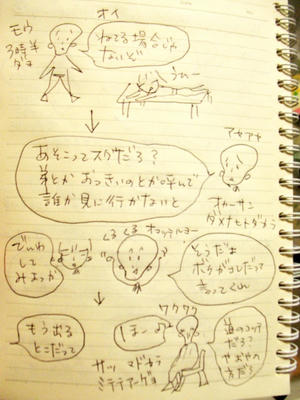 オイ
モウ
3時半
ダヨ
ねてる場合じゃ
ないぞ
うれー
アセアセ
あそこってスグだろ?
弟とか おっきいのとか呼んで
誰か見に行かないと
オカーサン
ダメナヒトダカラ
でんわ
して
みよっか
くるくる
オコッテルヨー
そうだよ
ボクがコレだって
言ってくれ
ワクワク
もう出る
とこだって
ほー♪
サッ マドカラ
ミテテアーゲヨ
道のコッチ
だろ?
やおやの
方だろ